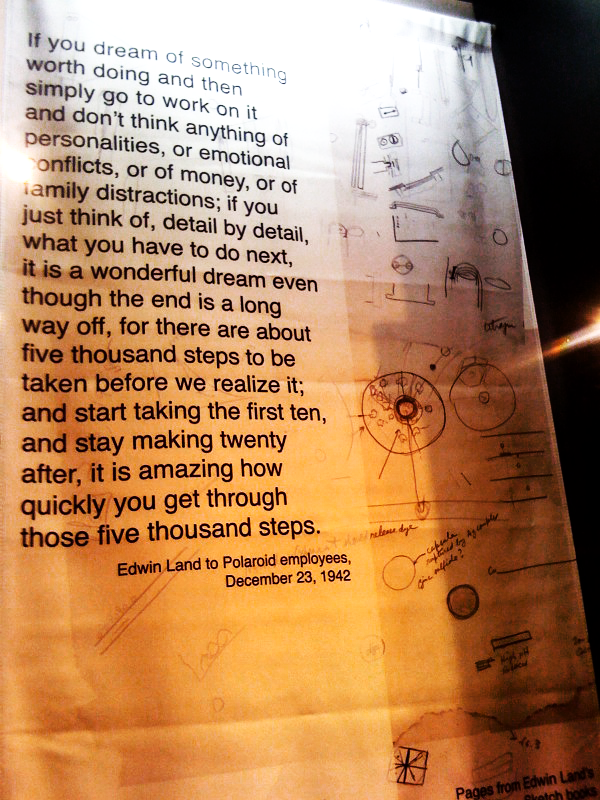 If you dream of something
worth doing and then
simply go to work on it
and don't think anything of
personalities, or emotional
conflicts, or of money, or of
family distractions; if you
just think of, detail by detail,
what you have to do next,
it is a wonderful dream even
though the end is a long
way off, for there are about
five thousand steps to be
taken before we realize it;
and start taking the first ten,
and stay making twenty
after, it is amazing how
quickly you get through
those five thousand steps.
Edwin Land to Polaroid employees,
December 23, 1942
release dye
capsule
ruptured by
Pages from Edwin Land's
Sketch books